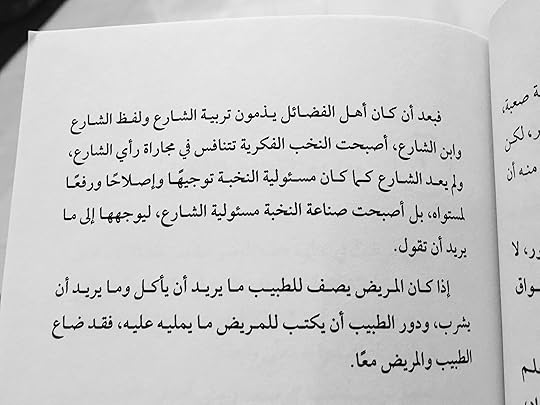 فبعد أن كان أهل الفضائل يذمون تربية الشارع ولفظ الشارع
وابن الشارع، أصبحت النخب الفكرية تتنافس في مجاراة رأي الشارع،
ولم يعد الشارع كما كان مسئولية النخبة توجيهًا وإصلاحًا ورفعًا
لمستواه، بل أصبحت صناعة النخبة مسئولية الشارع، ليوجهها إلى ما
يريد أن تقول.
إذا كان المريض يصف للطبيب ما يريد أن يأكل وما يريد أن
يشرب، ودور الطبيب أن يكتب للمريض ما يمليه عليه، فقد ضاع
الطبيب والمريض معًا.
ة صعبة،
ر، لكن
منه أن
ور، لا
ـواق
ـلم